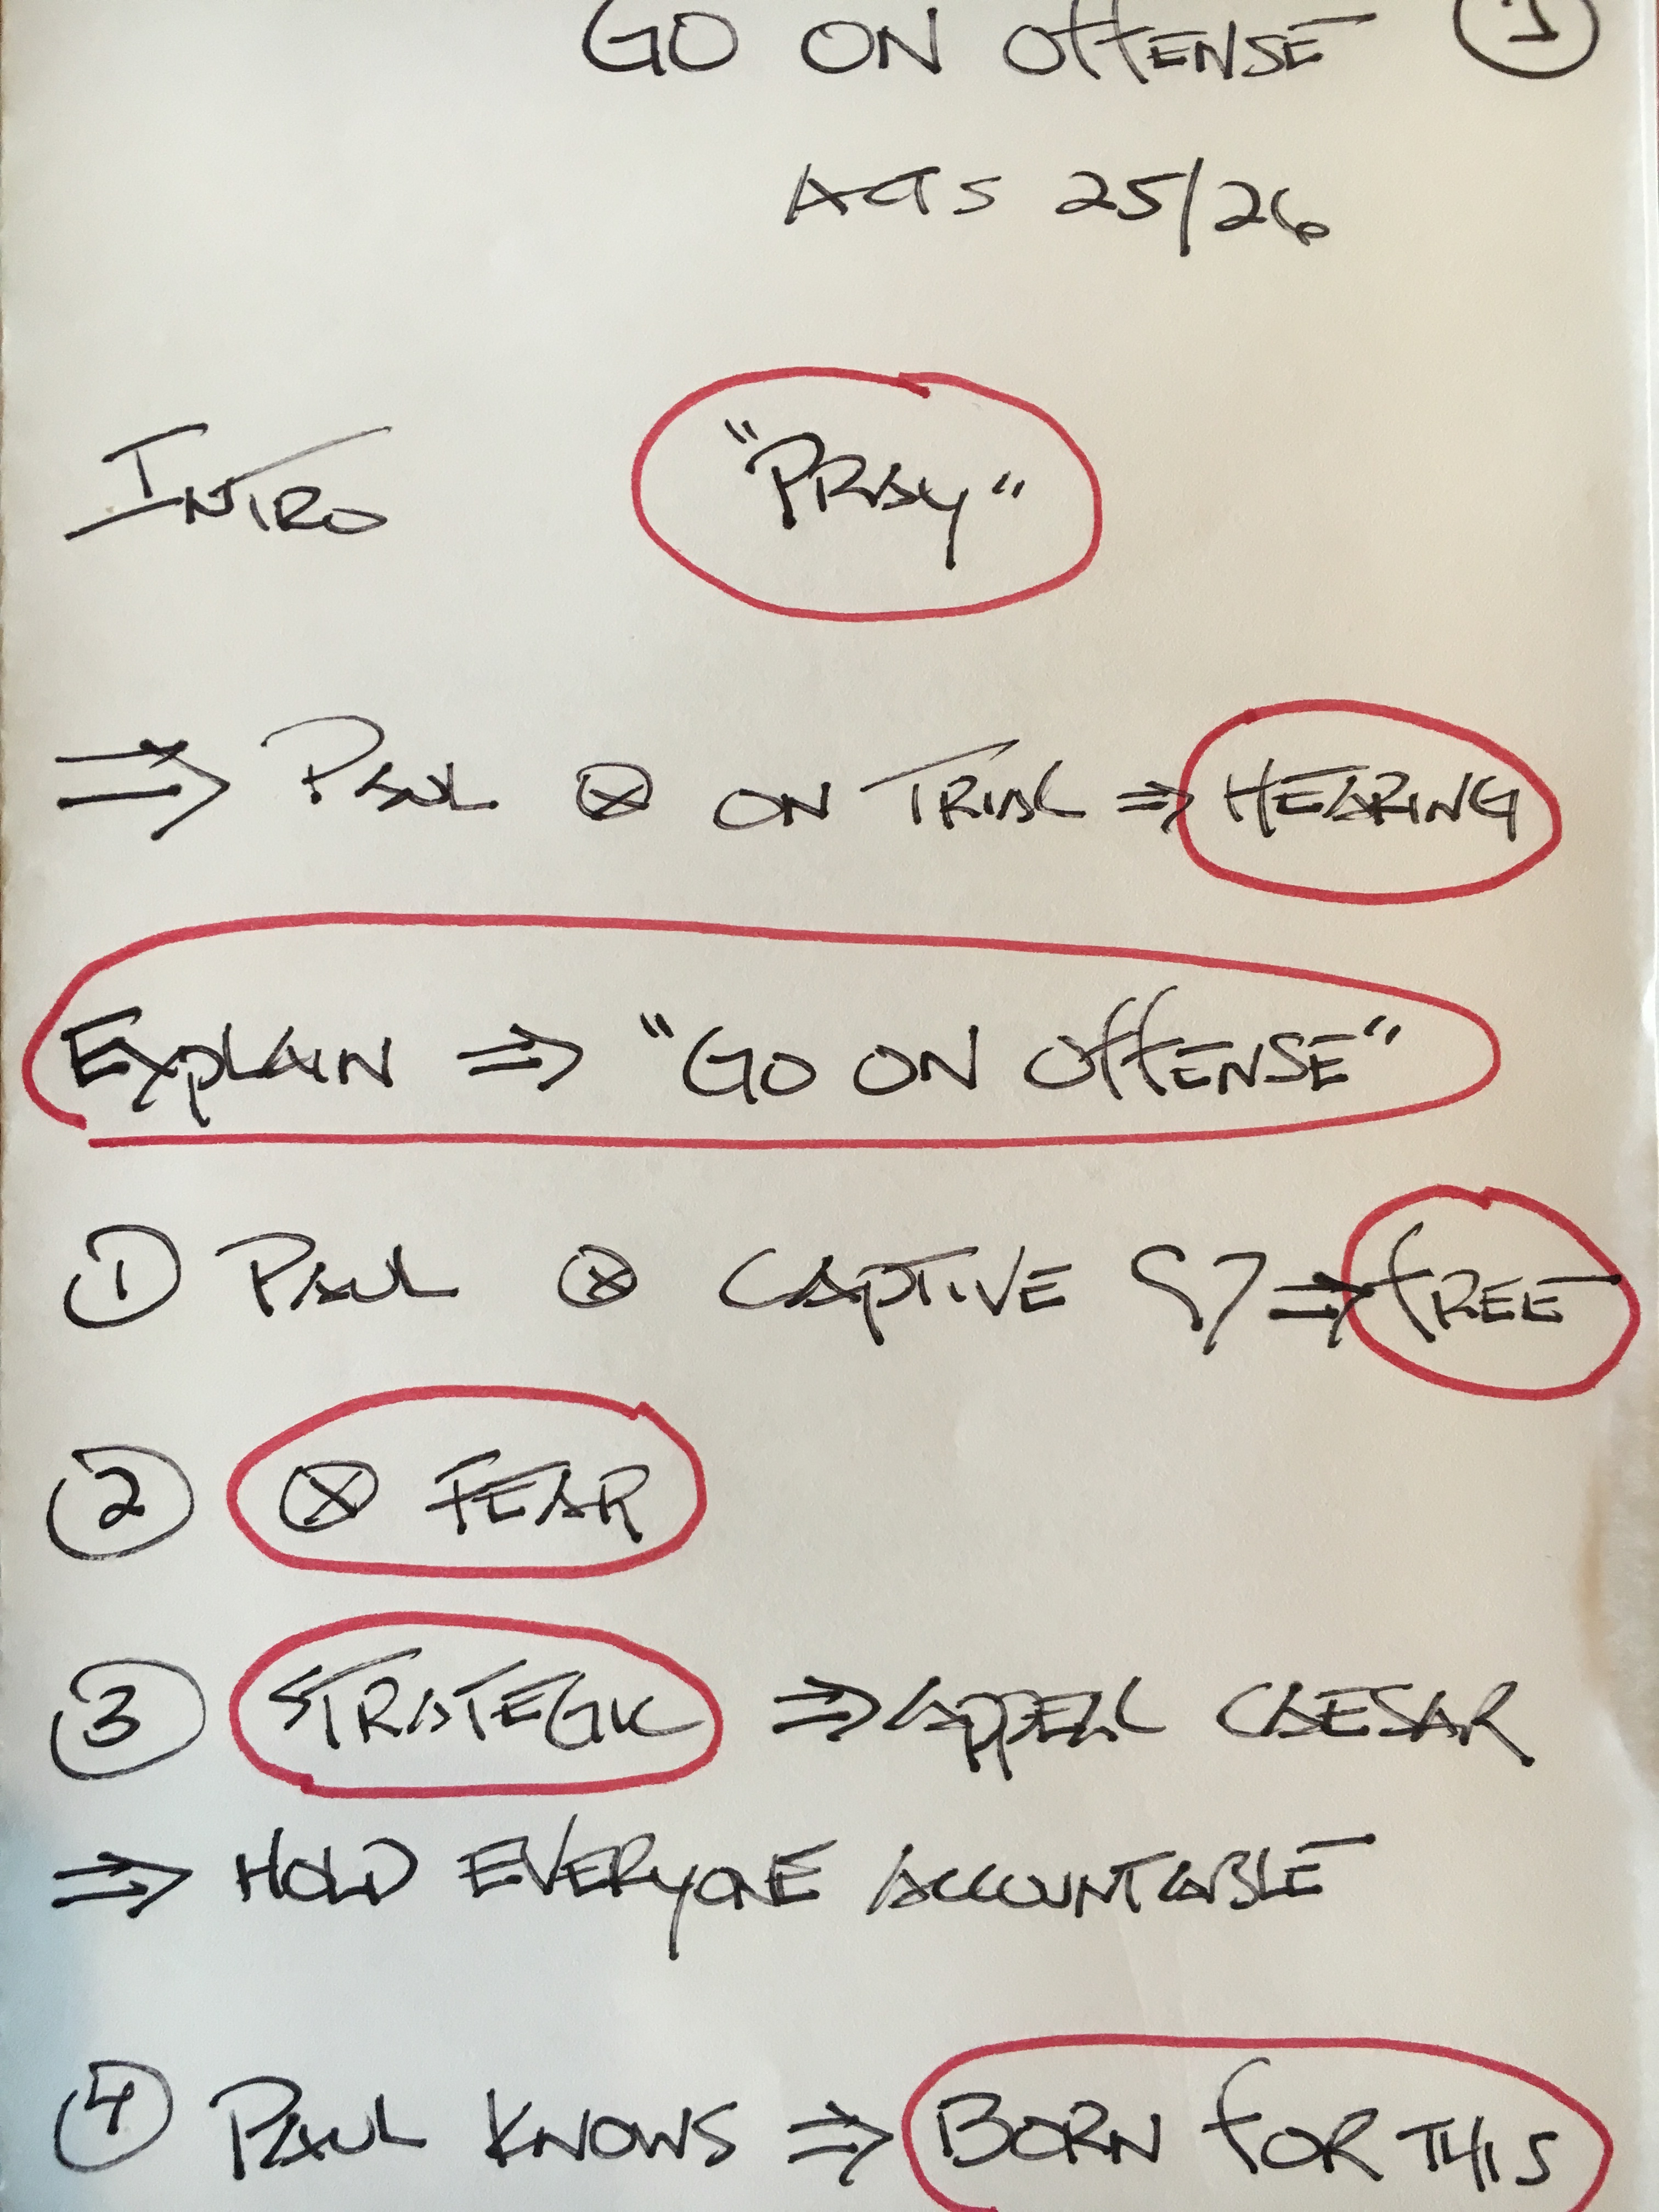 GO ON OFFENSE ①
ACTS 25/26
INTRO "PRAY"
⇒ PAUL ⊗ ON TRIAL ⇒ HEARING
EXPLAIN ⇒ "GO ON OFFENSE"
① PAUL ⊗ CAPTIVE ⇒ FREE
② ⊗ FEAR
③ STRATEGIC ⇒ APPEAL CAESAR
⇒ HOLD EVERYONE ACCOUNTABLE
④ PAUL KNOWS ⇒ BORN FOR THIS